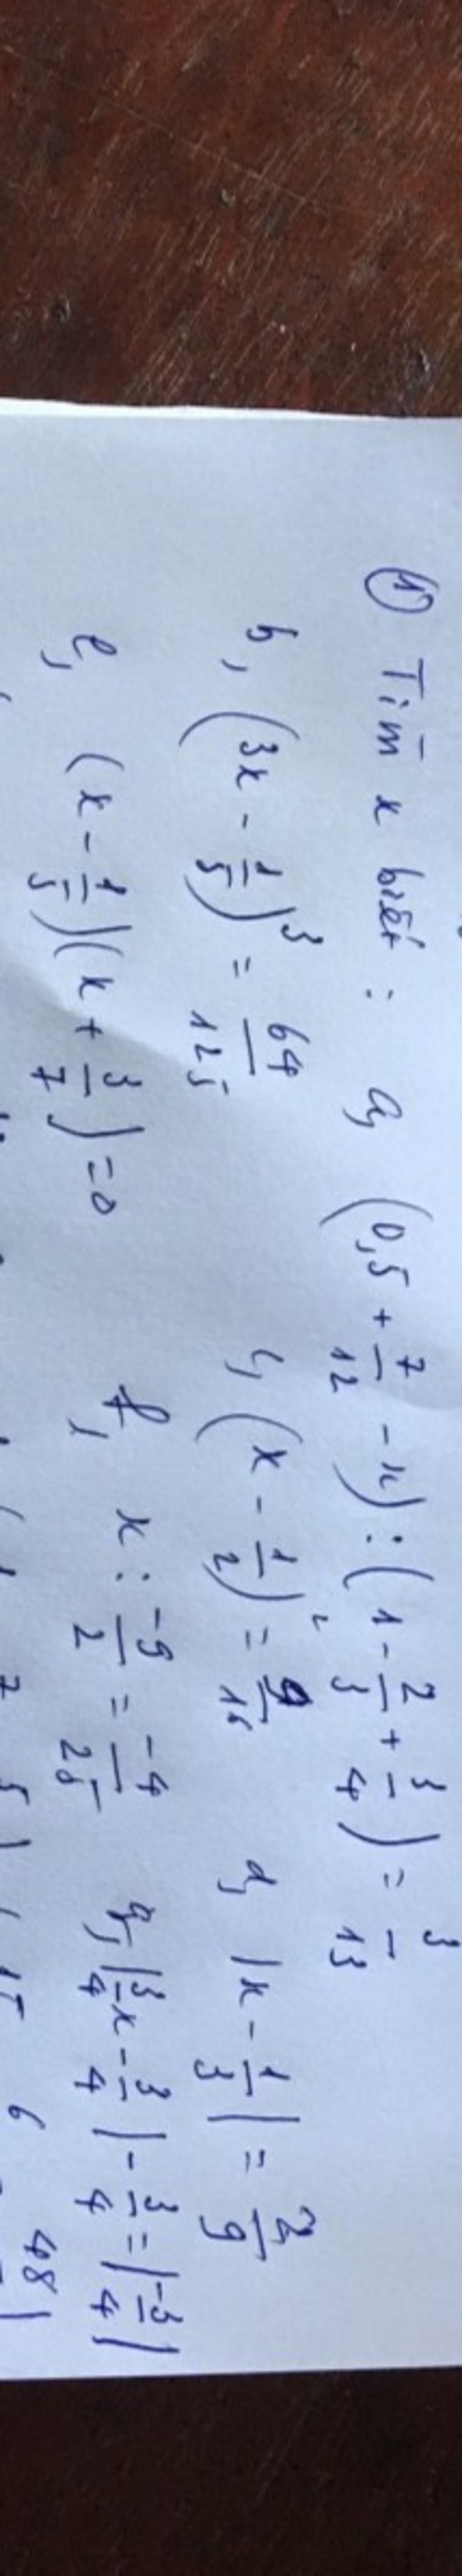 ① Tìm x biết : a, (0,5 + 7/12 - x) : (1 - 2/3 + 3/4) = 3/13
b, (3x - 1/5)³ = 64/125 c, (x - 1/2)² = 9/16 d, |x - 1/3| = 2/9
e, (x - 1/5)(x + 3/7) = 0 f, x : -9/2 = -4/25 g, |3/4 x - 3/4| - 3/4 = |-3/4|